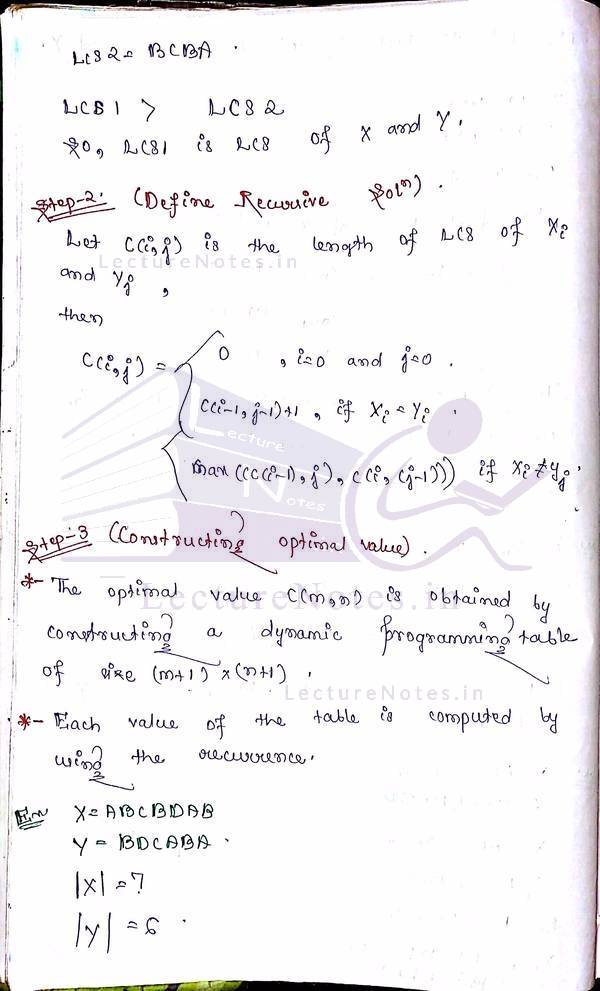 LCS 2 = BCBA .
LCS 1 > LCS 2
So, LCS1 is LCS of X and Y.
Step-2: (Define Recursive Solⁿ) .
Let C(i,j) is the length of LCS of Xi
LectureNotes.in
and Yj ,
then
C(i,j) = 0 , i=0 and j=0 .
C(i-1, j-1)+1 , if Xi = Yi .
Lecture
max (C(C(i-1), j), C(i, (j-1))) if Xi ≠ Yj .
Notes
Step-3 (Constructing optimal value) .
*- The optimal value C(m,n) is obtained by
LectureNotes.in
constructing a dynamic programming table
of size (m+1) x (n+1) .
LectureNotes.in
*- Each value of the table is computed by
using the recurrence.
Ex X = ABCBDAB
Y = BDCABA .
|X| = 7
|Y| = 6 .